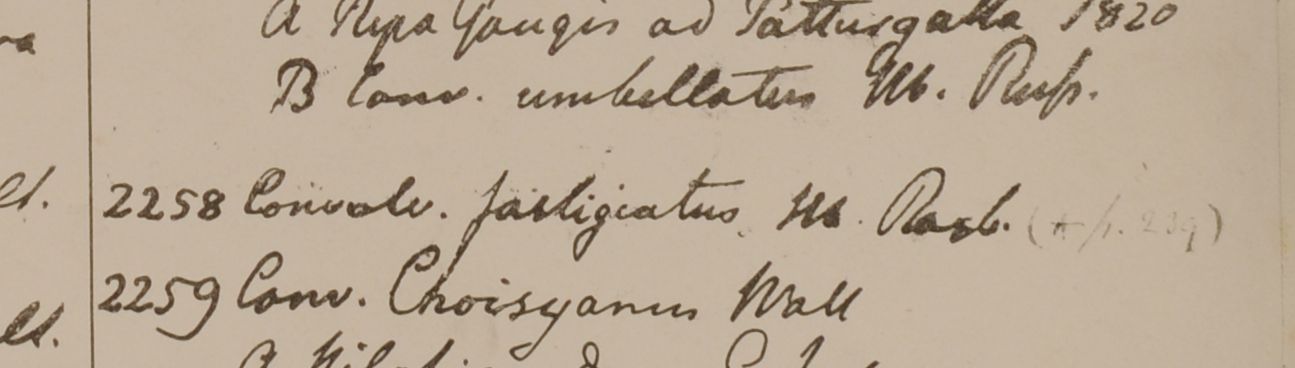 A Ripa Gangis ad Patturgatta 1820
B Conv. umbellatus Hb. Russ.
2258 Convolv. fastigiatus Hb. Roxb. (+ p. 239)
2259 Conv. Choisyanus Wall